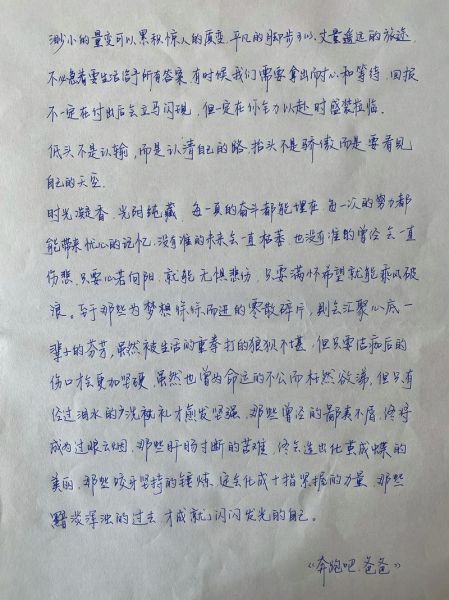 渺小的量变可以累积惊人的质变，平凡的脚步可以丈量遥远的旅途，
不必急着要生活给予所有答案，有时候我们需要拿出耐心和等待，回报
不一定在付出后会立马闪现，但一定在你全力以赴时盛装莅临。
低头不是认输，而是认清自己的路，抬头不是骄傲而是要看见
自己的天空
时光凝香，光耐绕藏，每一真的奋斗都能埋在，每一次的努力都
能带来忧心的记忆，没有谁的未来会一直枯萎，也没有谁的曾经会一直
伤悲，只要心若向阳，就能无惧悲伤，只要满怀希望就能乘风破
浪。至于那些为梦想踩而进的零散碎片，则会汇聚心底一
辈子的芬芳，虽然被生活的重拳打的狼狈不堪，但只要结痂后的
伤口才会更加坚硬，虽然也曾为命运的不公而枉然欲涕，但只有
经过泪水的洗礼才愈发坚强，那些曾经的鄙夷不屑，终将
成为过眼云烟，那些肝肠寸断的苦难，终会造出化茧成蝶的
美丽，那些咬牙坚持的锤炼，定会化成十指紧握的力量，那些
黯淡浑浊的过去，才成就了闪闪发光的自己。
《奔跑吧，爸爸》